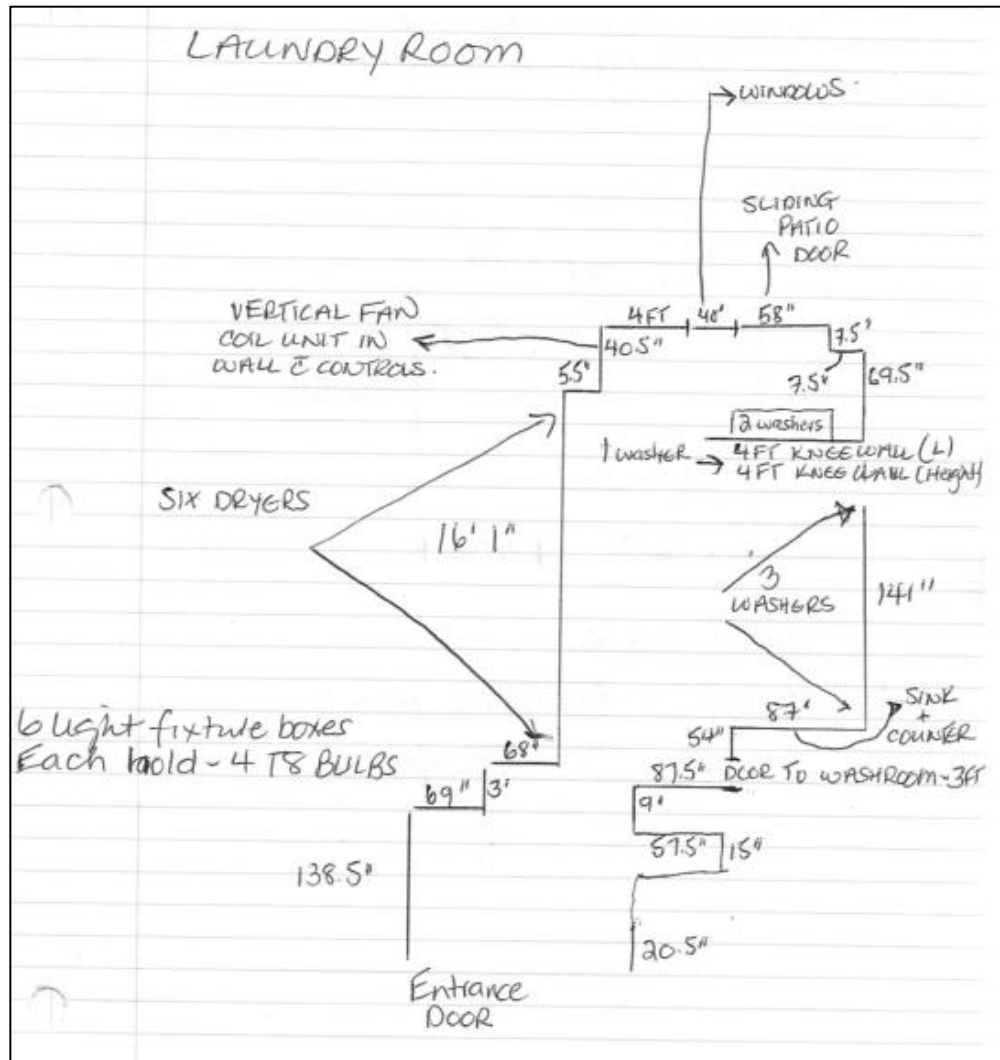 LAUNDRY ROOM
WINDOWS
SLIDING
PATIO
DOOR
VERTICAL FAN
COIL UNIT IN
WALL C̄ CONTROLS.
4FT
48"
58"
40.5"
7.5"
5.5"
7.5"
69.5"
2 washers
1 washer → 4FT KNEEWALL (L)
4FT KNEE WALL (Height)
SIX DRYERS
16' 1"
3
WASHERS
141"
6 light fixture boxes
Each hold - 4 T8 BULBS
87"
SINK
+
COUNTER
54"
68"
87.5" DOOR TO WASHROOM - 3FT
69"
3'
9"
57.5"
15"
138.5"
20.5"
Entrance
DOOR